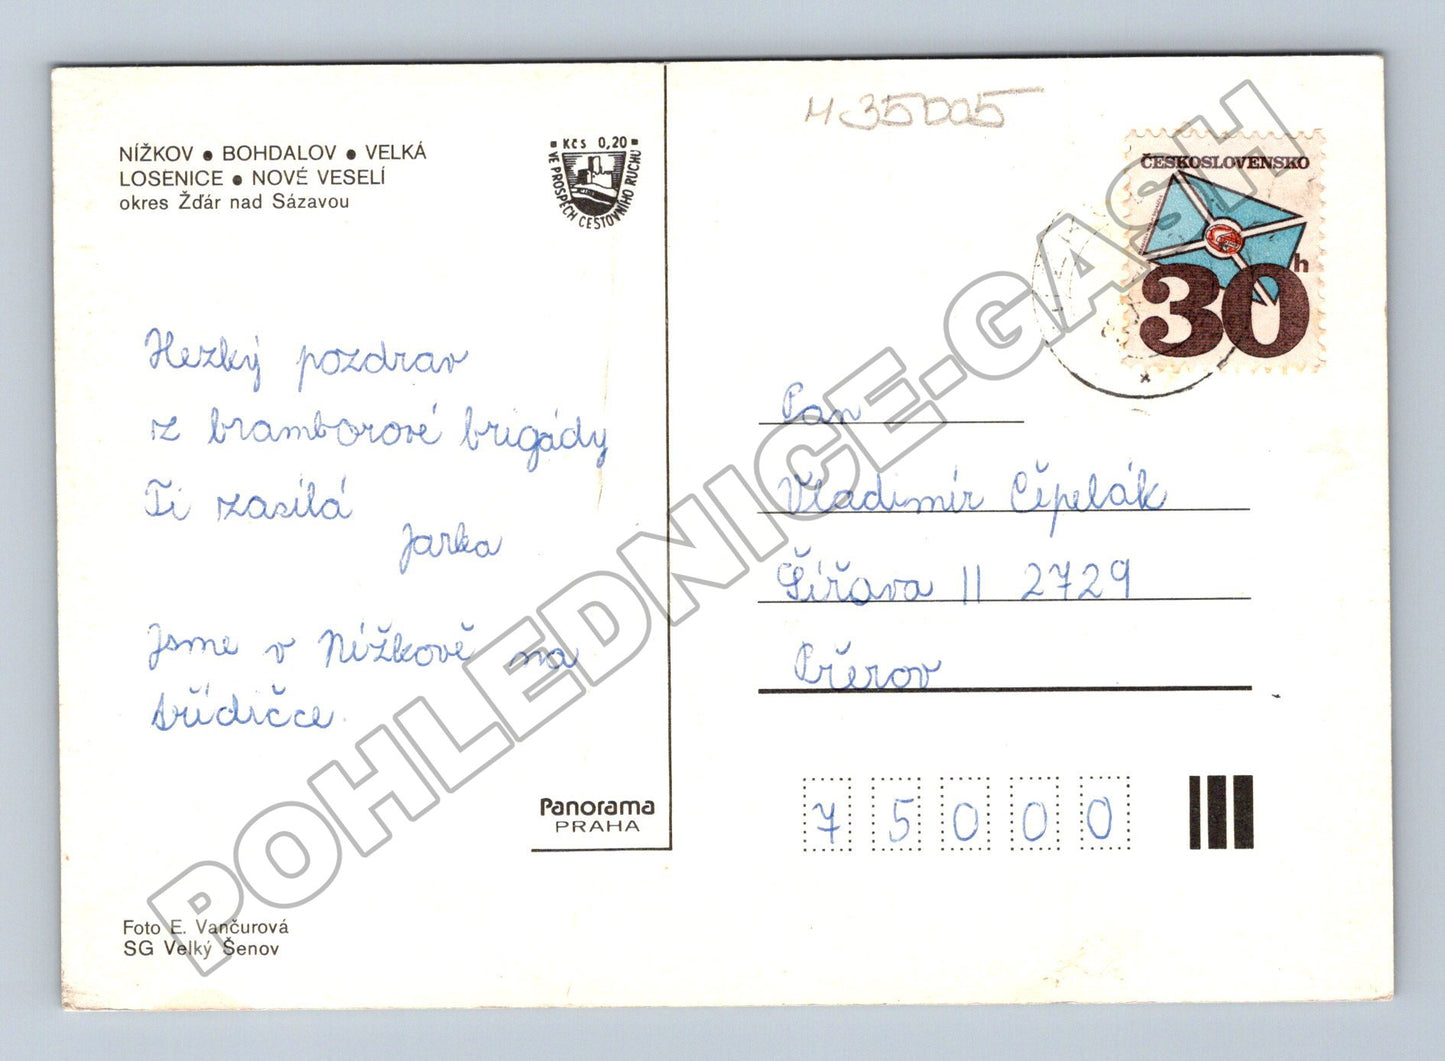 NÍŽKOV • BOHDALOV • VELKÁ
LOSENICE • NOVÉ VESELÍ
okres Žďár nad Sázavou
Kčs 0,20
VE PROSPĚCH CESTOVNÍHO RUCHU
H35005
ČESKOSLOVENSKO
30h
Hezký pozdrav
z bramborové brigády
Ti zasílá
Jarka
Jsme v Nížkově na
třídičce.
Pan
Vladimír Cípelák
Šířava II 2729
Přerov
75000
Panorama
PRAHA
Foto E. Vančurová
SG Velký Šenov
POHLEDNICE-GASH